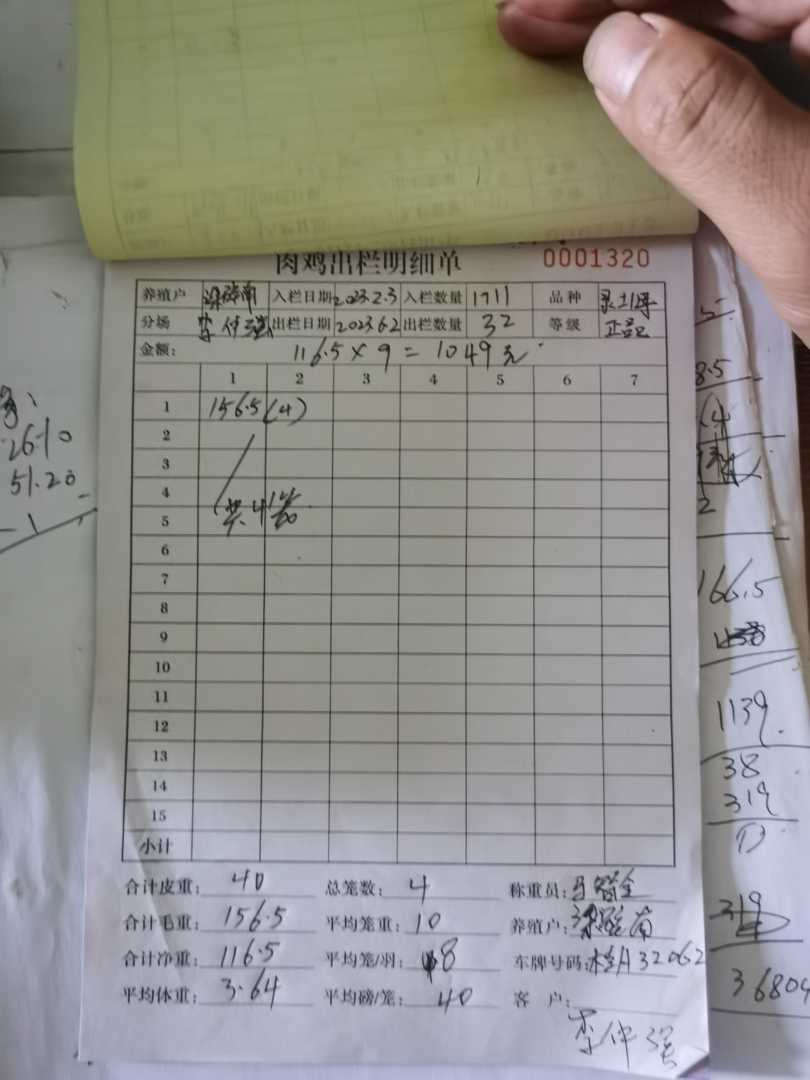 肉鸡出栏明细单 0001320
养殖户 入栏日期 2023.2.3 入栏数量 1711 品种
分场 李仲强 出栏日期 2023.6.2 出栏数量 32 等级 正品
金额: 116.5 × 9 = 1049元
1 2 3 4 5 6 7
1 156.5 (4)
2
3
4
5 共4笼
6
7
8
9
10
11
12
13
14
15
小计
合计皮重: 40 总笼数: 4 称重员:
合计毛重: 156.5 平均笼重: 10 养殖户:
合计净重: 116.5 平均笼/羽: 8 车牌号码: 桂A32062
平均体重: 3.64 平均磅/笼: 40 客 户:
李仲强
26.10
51.20
8.5
(4
2
166.5
1139
38
319
319
36804